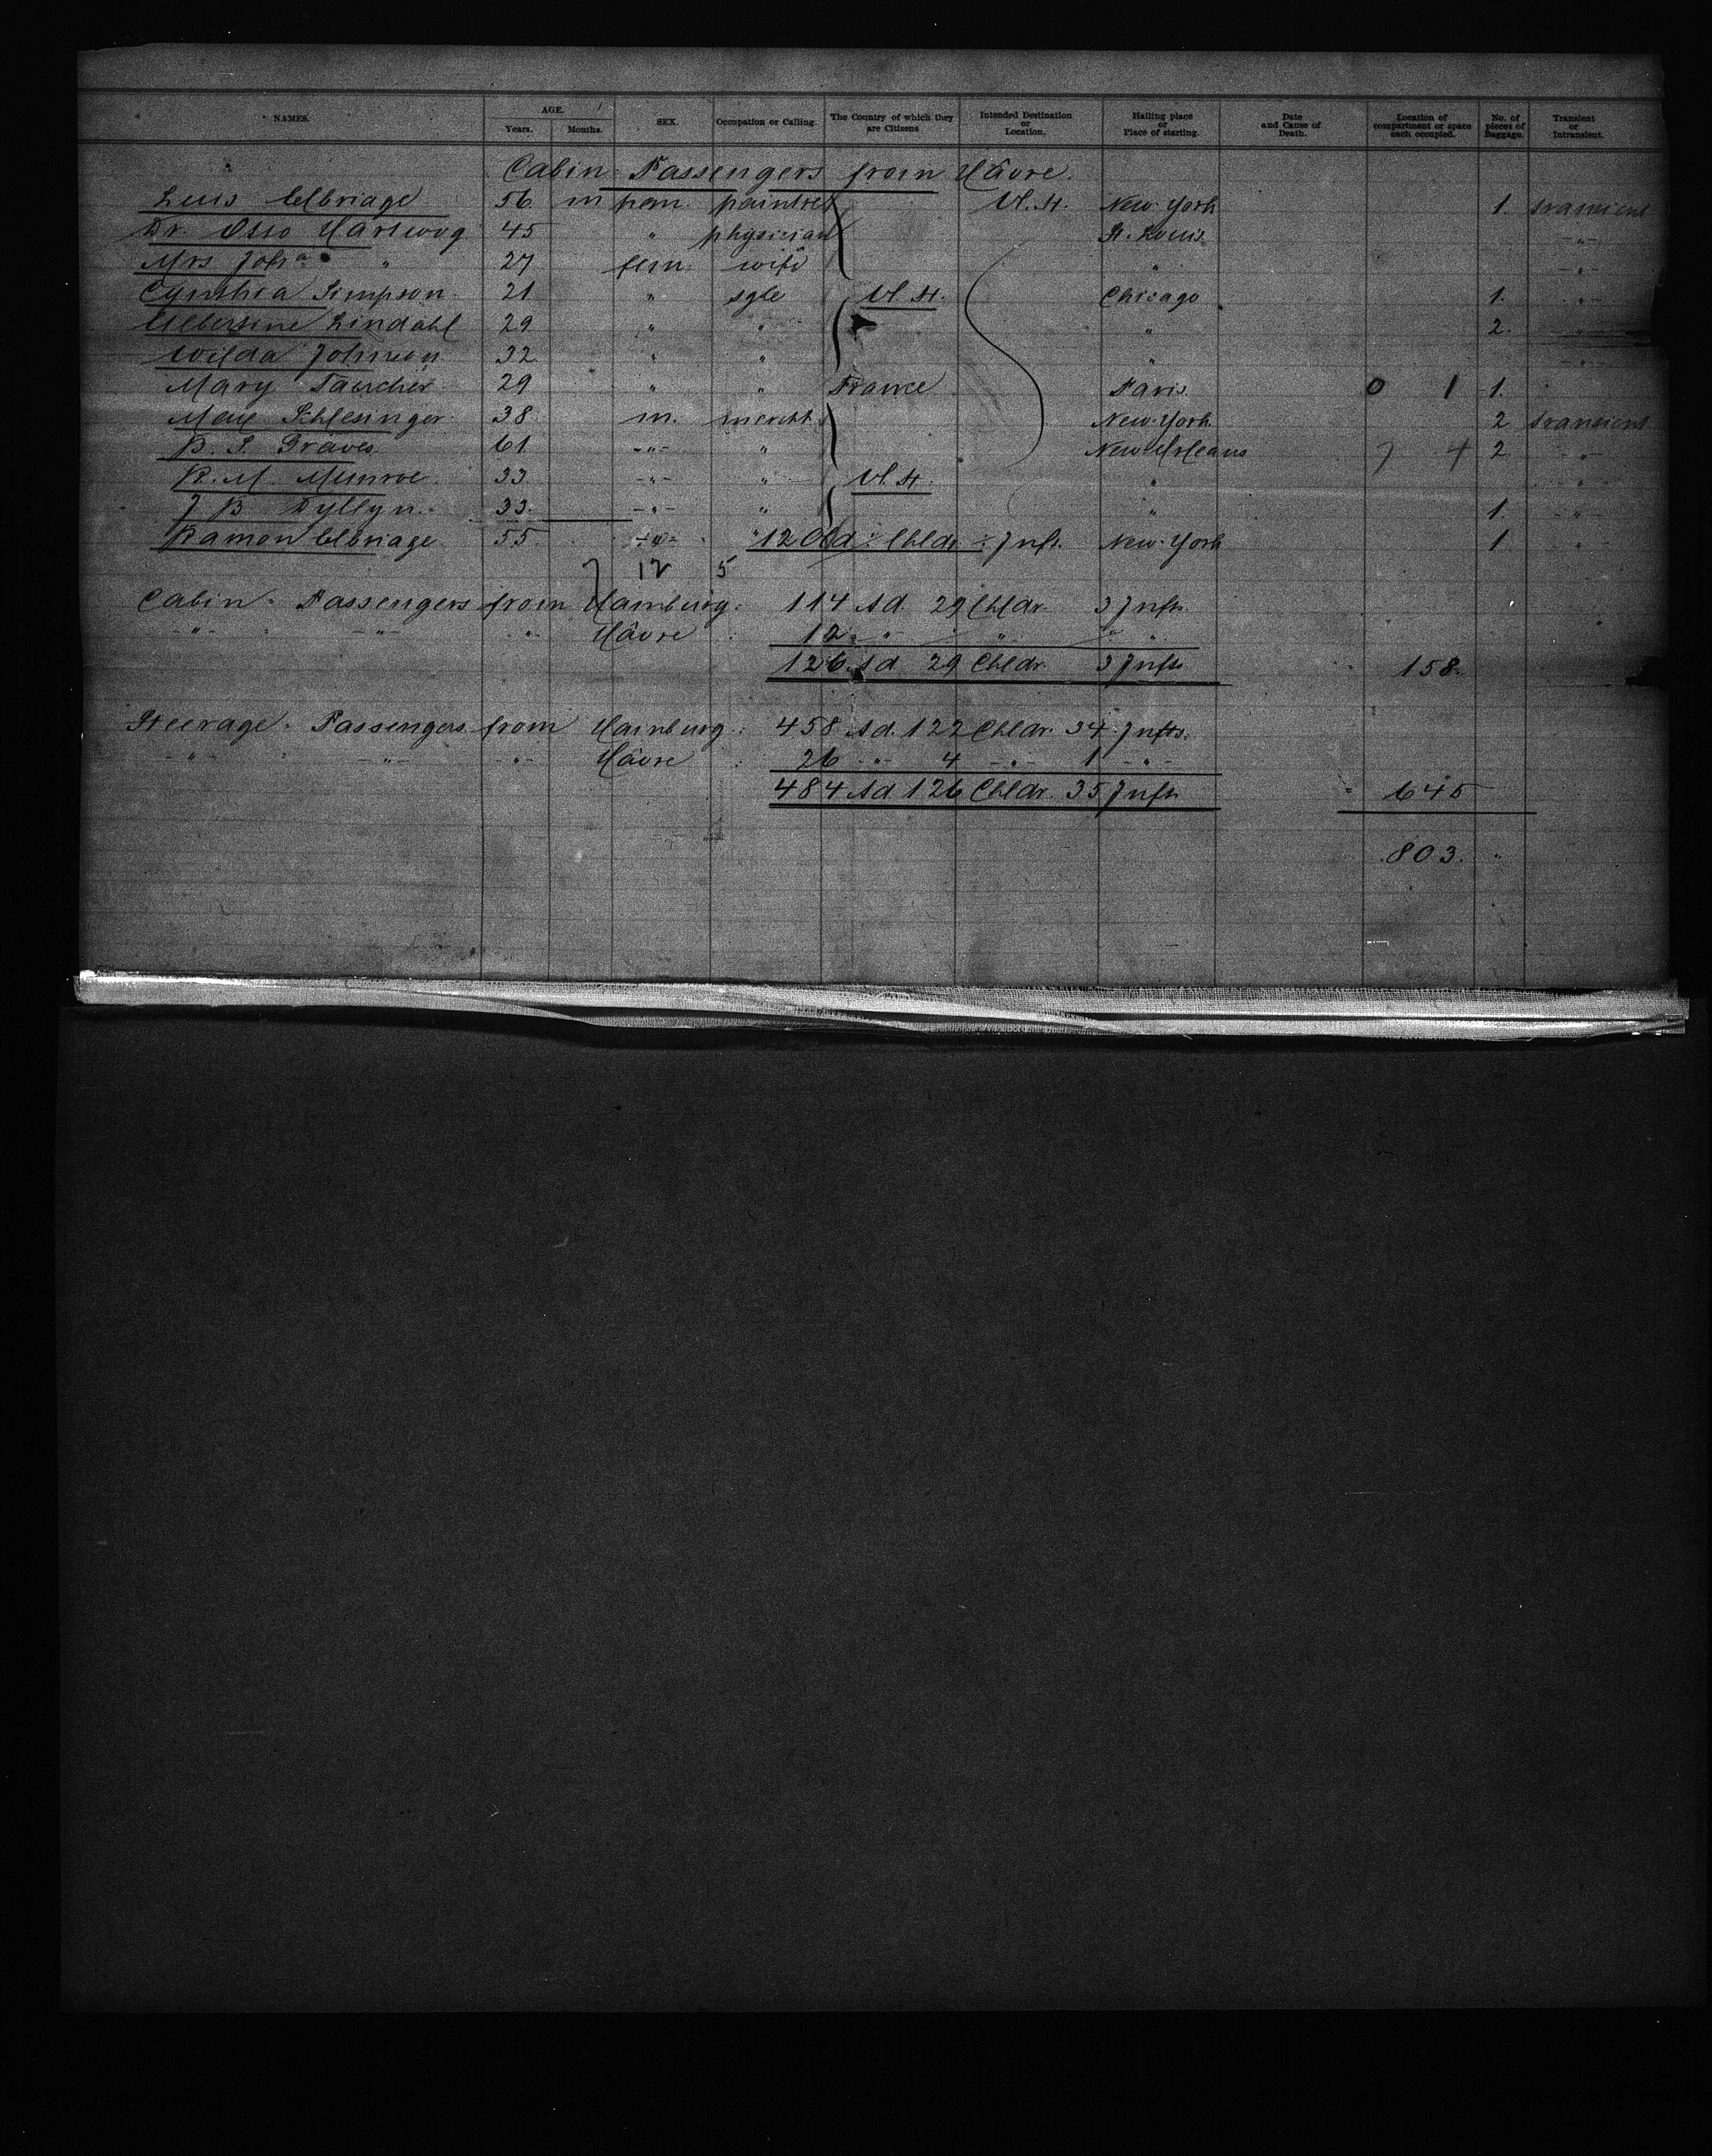 NAMES. AGE. Years. Months. SEX. Occupation or Calling. The Country of which they are Citizens Intended Destination or Location. Hailing place or Place of starting. Date and Cause of Death. Location of compartment or space each occupied. No. of pieces of Baggage. Transient or Intransient.
Cabin Passengers from Hâvre.
56 m U. St. New-York 1. transient
Dr. Otto Hartwog 45 " physician St. Louis -"-
Mrs Joha " 27 fem. wife " -"-
Cynthia Simpson 21 " sgle U. St. Chicago 1. -"-
Albertine Lindahl 29 " " " 2. "
Wilda Johnson 32 " " " -"-
Mary 29 " " France Paris. 0 1 1.
Max Schlesinger 38. m. mercht. New-York 2 transient
B. S. Graves. 61 -"- " New-Orleans 7 4 2 -"-
R. M. Munroe 33 -"- " U. St. " "
J B Dyllyn. 33. -"- " " 1 -"-
Ramon 55. -"- " 12 Ad ÷ Chldr. ÷ Jnft. New-York 1 "
12 5
Cabin Passengers from Hamburg: 114 Ad. 29 Chldr. 3 Jnfts.
-"- -"- -"- Hâvre : 12 -"- ÷ " ÷ "
126 Ad 29 Chldr. 3 Jnfts 158.
Steerage Passengers from Hamburg: 458 Ad. 122 Chldr. 34 Jnfts.
-"- -"- -"- Hâvre : 26 -"- 4 -"- 1 -"-
484 Ad 126 Chldr. 35 Jnfts = 645
803. "